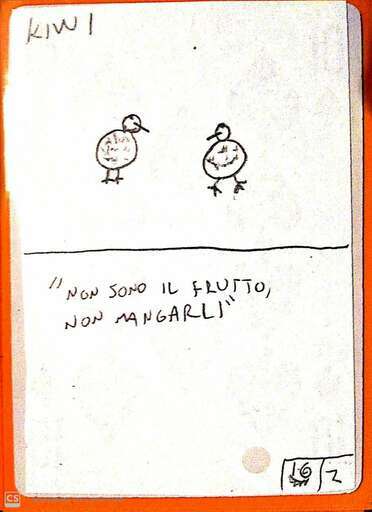 KIWI
"NON SONO IL FRUTTO,
NON MANGARLI"
16
2
CS